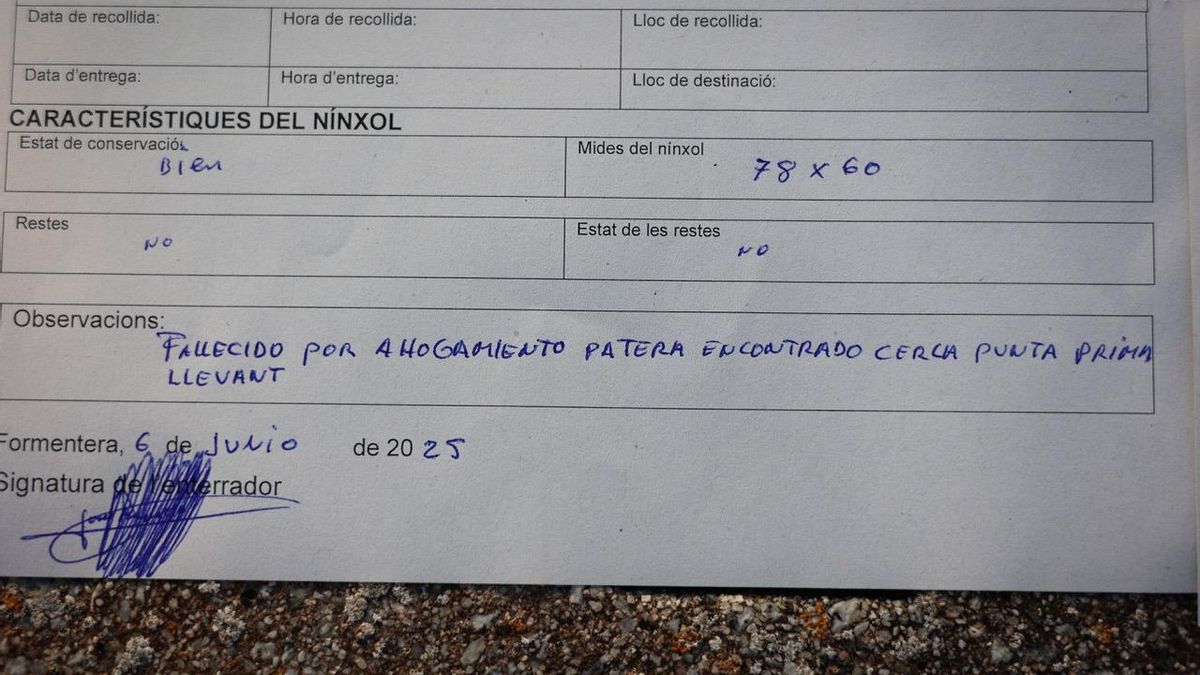 Data de recollida: Hora de recollida: Lloc de recollida:
Data d'entrega: Hora d'entrega: Lloc de destinació:
CARACTERÍSTIQUES DEL NÍNXOL
Estat de conservació Mides del nínxol
Bien 78 x 60
Restes Estat de les restes
NO NO
Observacions:
FALLECIDO POR AHOGAMIENTO PATERA ENCONTRADO CERCA PUNTA PRIMA
LLEVANT
Formentera, 6 de JUNIO de 2025
Signatura de l'enterrador